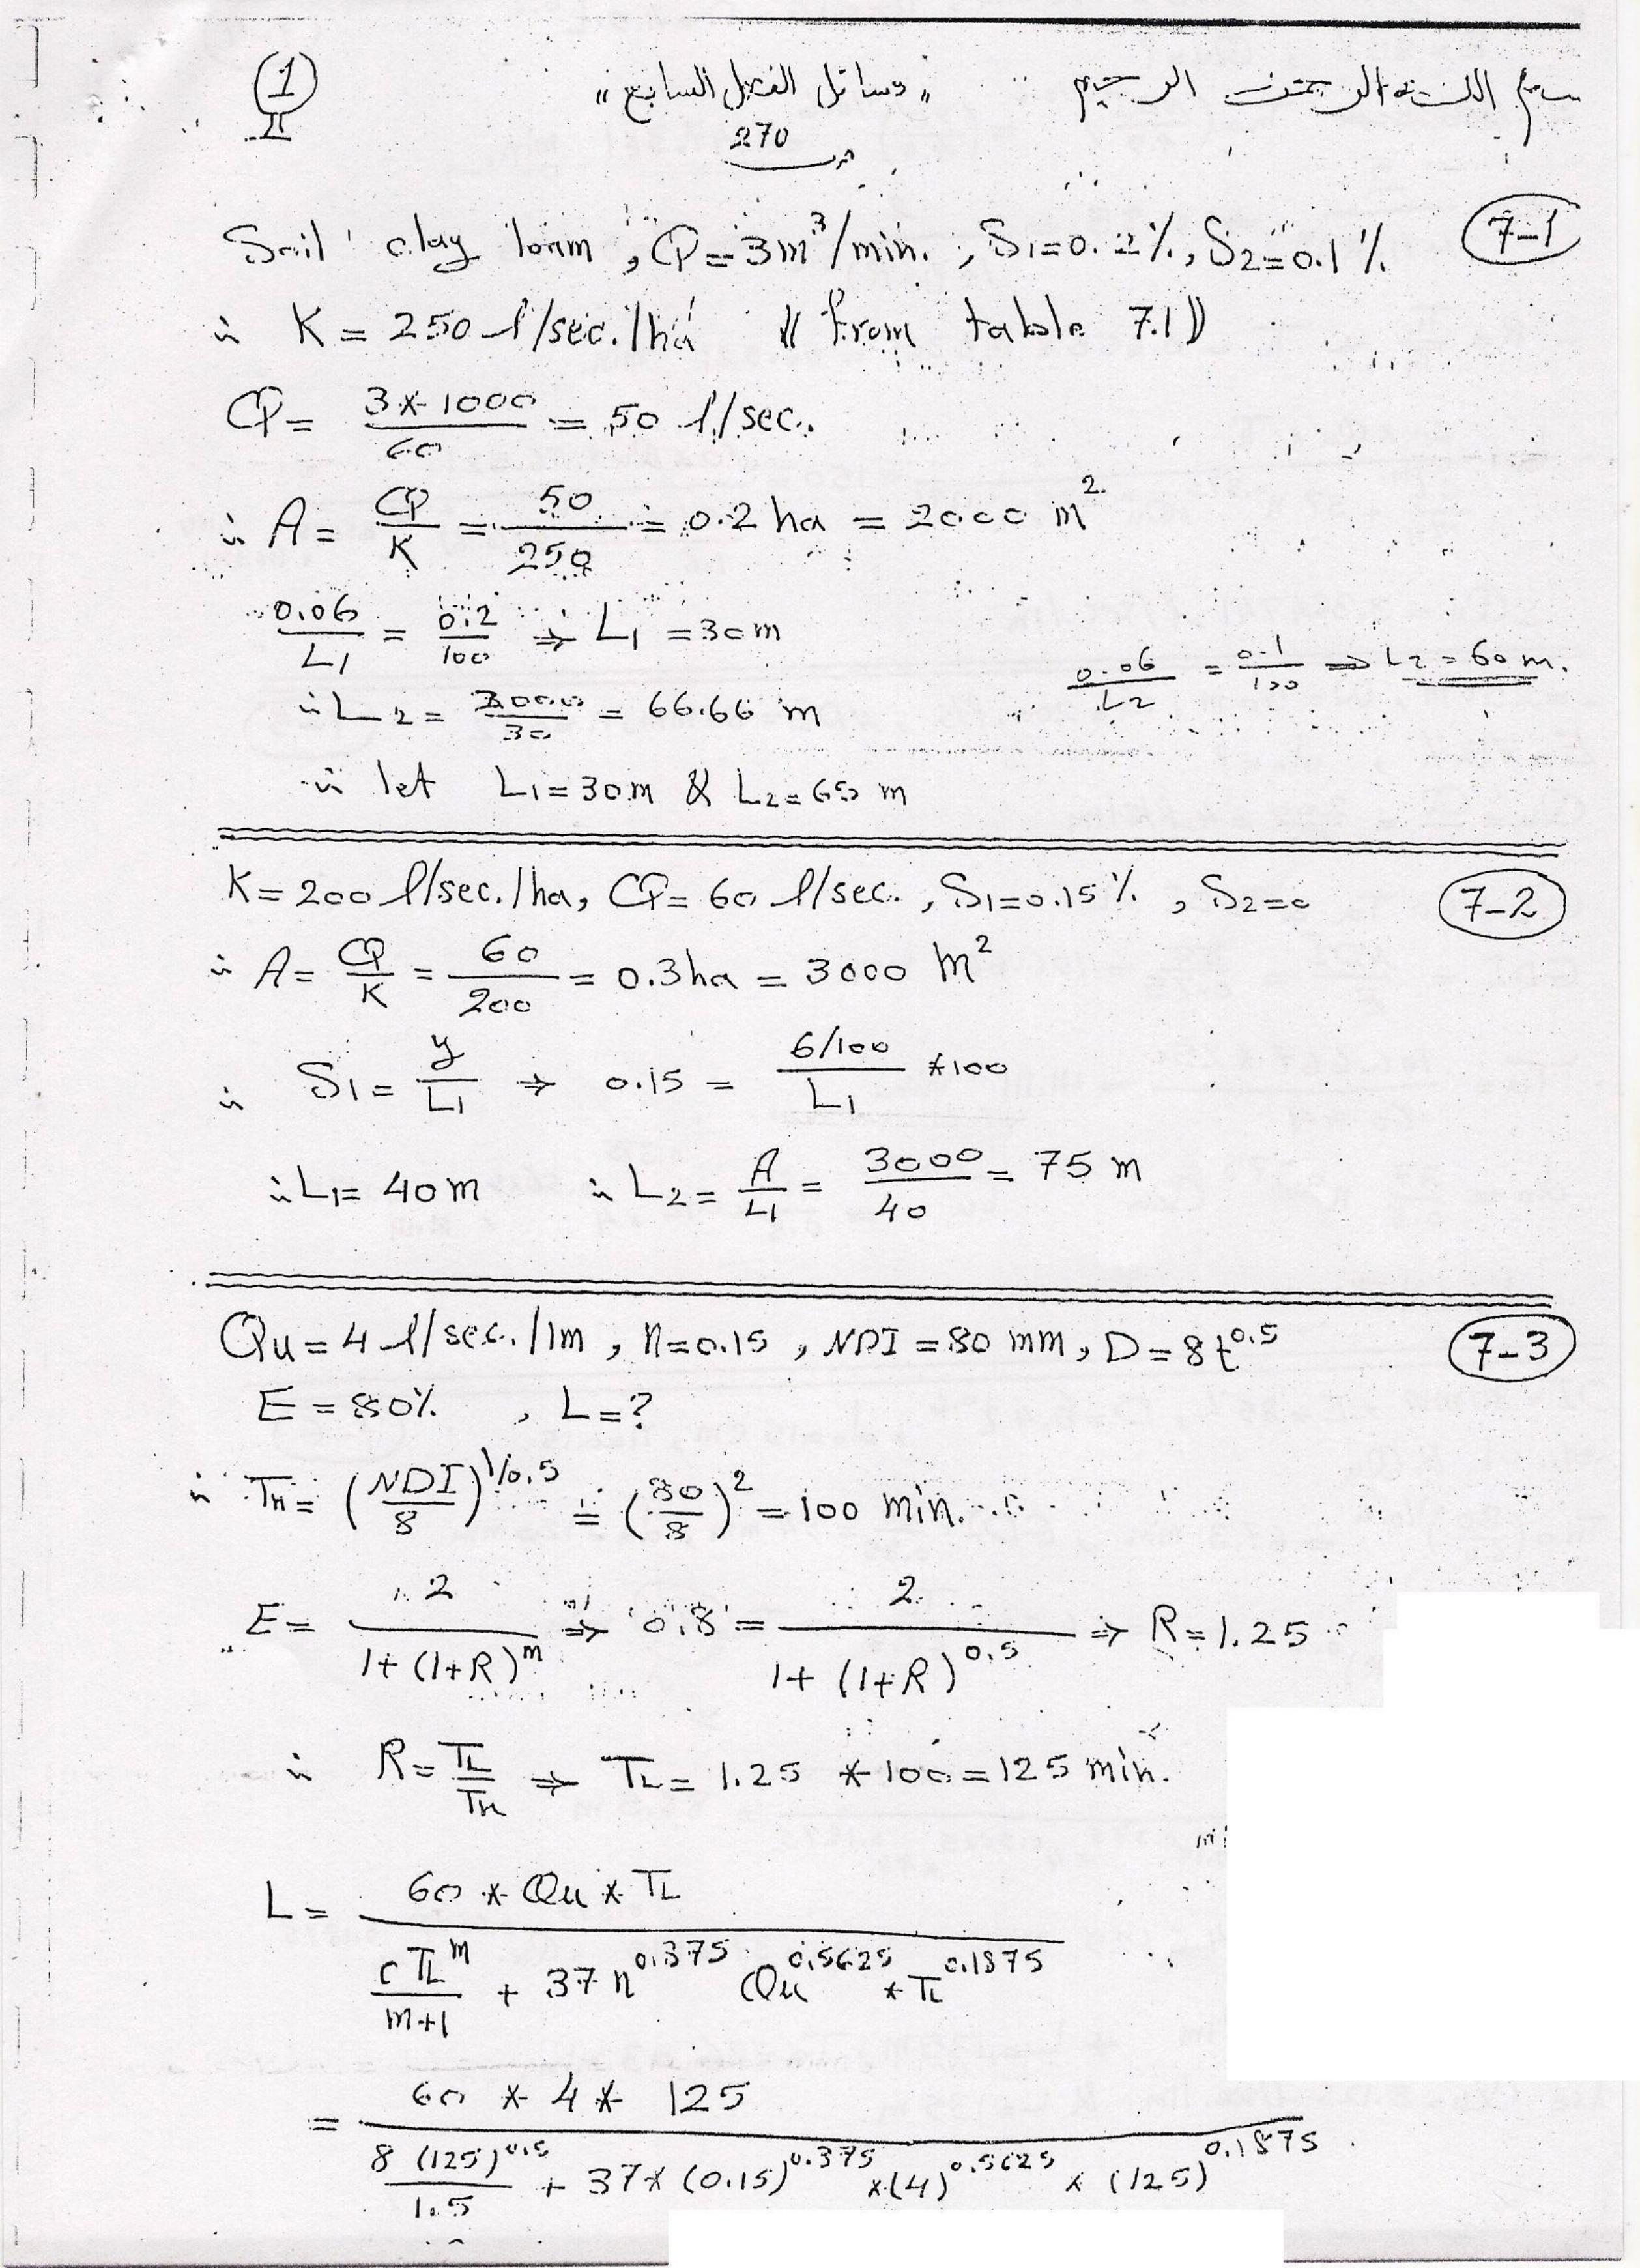 بسم الله الرحمن الرحيم "مسائل الفصل السابع" 1
ص 270
7-1
Soil clay loam, Q = 3m³/min., S1=0.2%, S2=0.1%
∴ K = 250 l/sec./ha (( from table 7.1))
Q = 3*1000/60 = 50 l/sec.
∴ A = Q/K = 50/250 = 0.2 ha = 2000 m²
0.06/L1 = 0.2/100 ⇒ L1 = 30m
0.06/L2 = 0.1/100 ⇒ L2 = 60 m.
∴ L2 = 2000/30 = 66.66 m
∴ let L1 = 30m & L2 = m
7-2
K = 200 l/sec./ha, Q = 60 l/sec., S1=0.15%, S2=0
∴ A = Q/K = 60/200 = 0.3ha = 3000 m²
∴ S1 = y/L1 ⇒ 0.15 = (6/100)/L1 *100
∴ L1 = 40m ∴ L2 = A/L1 = 3000/40 = 75 m
7-3
Qu = 4 l/sec./1m, n=0.15, NDI = 80 mm, D = 8t^0.5
E = 80%, L=?
∴ Tn = (NDI/8)^1/0.5 = (80/8)² = 100 min.
E = 2/(1+(1+R)^m) ⇒ 0.8 = 2/(1+(1+R)^0.5) ⇒ R = 1.25
∴ R = TL/Tn ⇒ TL = 1.25 * 100 = 125 min.
L = (60 * Qu * TL)/(cTL^m/(m+1) + 37 n^0.375 Qu^0.5625 * TL^0.1875)
= (60 * 4 * 125)/(8(125)^0.5/1.5 + 37*(0.15)^0.375 *(4)^0.5625 * (125)^0.1875)